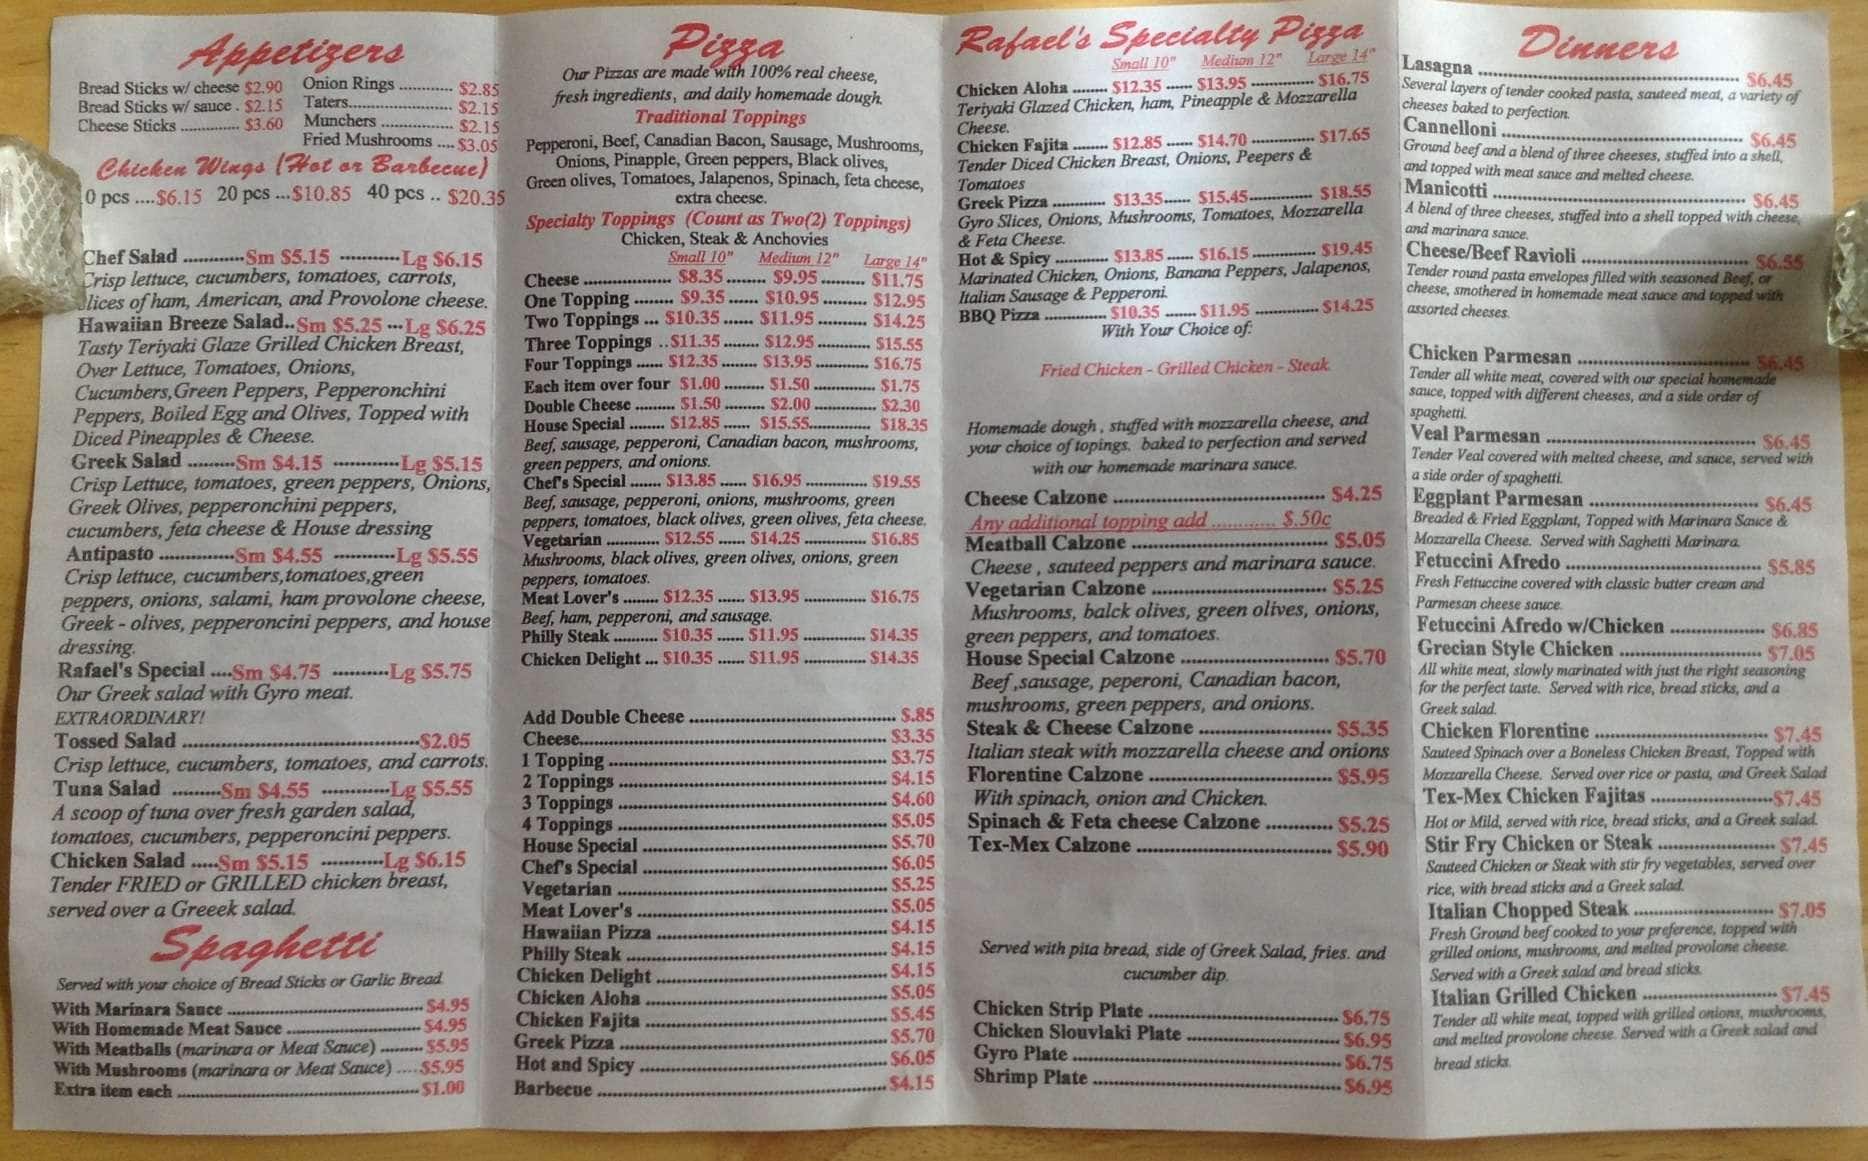 Appetizers
Bread Sticks w/ cheese $2.90
Bread Sticks w/ sauce . $2.15
Cheese Sticks .............. $3.60
Onion Rings ............ $2.85
Taters..................... $2.15
Munchers ............... $2.15
Fried Mushrooms .... $3.05
Chicken Wings (Hot or Barbecue)
0 pcs ....$6.15 20 pcs ...$10.85 40 pcs .. $20.35
Chef Salad ............Sm $5.15 ...........Lg $6.15
Crisp lettuce, cucumbers, tomatoes, carrots,
lices of ham, American, and Provolone cheese.
Hawaiian Breeze Salad..Sm $5.25 ...Lg $6.25
Tasty Teriyaki Glaze Grilled Chicken Breast,
Over Lettuce, Tomatoes, Onions,
Cucumbers,Green Peppers, Pepperonchini
Peppers, Boiled Egg and Olives, Topped with
Diced Pineapples & Cheese.
Greek Salad .........Sm $4.15 ............Lg $5.15
Crisp Lettuce, tomatoes, green peppers, Onions,
Greek Olives, pepperonchini peppers,
cucumbers, feta cheese & House dressing
Antipasto ..............Sm $4.55 ...........Lg $5.55
Crisp lettuce, cucumbers,tomatoes,green
peppers, onions, salami, ham provolone cheese,
Greek - olives, pepperoncini peppers, and house
dressing.
Rafael's Special ....Sm $4.75 ..........Lg $5.75
Our Greek salad with Gyro meat.
EXTRAORDINARY!
Tossed Salad ...........................................$2.05
Crisp lettuce, cucumbers, tomatoes, and carrots.
Tuna Salad .........Sm $4.55 ............Lg $5.55
A scoop of tuna over fresh garden salad,
tomatoes, cucumbers, pepperoncini peppers.
Chicken Salad .....Sm $5.15 ...........Lg $6.15
Tender FRIED or GRILLED chicken breast,
served over a Greeek salad.
Spaghetti
Served with your choice of Bread Sticks or Garlic Bread
With Marinara Sance ................................... $4.95
With Homemade Meat Sauce ........................ $4.95
With Meatballs (marinara or Meat Sauce) ........ $5.95
With Mushrooms (marinara or Meat Sauce) .... $5.95
Extra item each ........................................... $1.00
Pizza
Our Pizzas are made with 100% real cheese,
fresh ingredients, and daily homemade dough.
Traditional Toppings
Pepperoni, Beef, Canadian Bacon, Sausage, Mushrooms,
Onions, Pinapple, Green peppers, Black olives,
Green olives, Tomatoes, Jalapenos, Spinach, feta cheese,
extra cheese.
Specialty Toppings (Count as Two(2) Toppings)
Chicken, Steak & Anchovies
Small 10" Medium 12" Large 14"
Cheese .................. $8.35 ........ $9.95 ......... $11.75
One Topping ........ $9.35 ...... $10.95 .......... $12.95
Two Toppings ... $10.35 ...... $11.95 .......... $14.25
Three Toppings ..$11.35 ...... $12.95 ........... $15.55
Four Toppings ...... $12.35 ...... $13.95 ............ $16.75
Each item over four $1.00 ......... $1.50 ............. $1.75
Double Cheese ......... $1.50 ......... $2.00 .............. $2.30
House Special ........ $12.85 ...... $15.55.............. $18.35
Beef, sausage, pepperoni, Canadian bacon, mushrooms,
green peppers, and onions.
Chef's Special ....... $13.85 ...... $16.95 .............. $19.55
Beef, sausage, pepperoni, onions, mushrooms, green
peppers, tomatoes, black olives, green olives, feta cheese.
Vegetarian ............ $12.55 ...... $14.25 .............. $16.85
Mushrooms, black olives, green olives, onions, green
peppers, tomatoes.
Meat Lover's ........ $12.35 ...... $13.95 .............. $16.75
Beef, ham, pepperoni, and sausage.
Philly Steak .......... $10.35 ...... $11.95 .............. $14.35
Chicken Delight ... $10.35 ...... $11.95 .............. $14.35
Add Double Cheese ........................................... $.85
Cheese............................................................... $3.35
1 Topping .......................................................... $3.75
2 Toppings ......................................................... $4.15
3 Toppings ......................................................... $4.60
4 Toppings ......................................................... $5.05
House Special .................................................... $5.70
Chef's Special .................................................... $6.05
Vegetarian ......................................................... $5.25
Meat Lover's ..................................................... $5.05
Hawaiian Pizza .................................................. $4.15
Philly Steak ....................................................... $4.15
Chicken Delight ................................................. $4.15
Chicken Aloha ................................................... $5.05
Chicken Fajita ................................................... $5.45
Greek Pizza ....................................................... $5.70
Hot and Spicy .................................................... $6.05
Barbecue ............................................................ $4.15
Rafael's Specialty Pizza
Small 10" Medium 12" Large 14"
Chicken Aloha ........ $12.35 ...... $13.95 ............ $16.75
Teriyaki Glazed Chicken, ham, Pineapple & Mozzarella
Cheese.
Chicken Fajita ........ $12.85 ...... $14.70 .............. $17.65
Tender Diced Chicken Breast, Onions, Peepers &
Tomatoes
Greek Pizza ............ $13.35...... $15.45.............. $18.55
Gyro Slices, Onions, Mushrooms, Tomatoes, Mozzarella
& Feta Cheese.
Hot & Spicy ............ $13.85 ...... $16.15 .............. $19.45
Marinated Chicken, Onions, Banana Peppers, Jalapenos,
Italian Sausage & Pepperoni.
BBQ Pizza .............. $10.35 ...... $11.95 .............. $14.25
With Your Choice of:
Fried Chicken - Grilled Chicken - Steak
Homemade dough , stuffed with mozzarella cheese, and
your choice of topings. baked to perfection and served
with our homemade marinara sauce.
Cheese Calzone ........................................ $4.25
Any additional topping add ............ $.50c
Meatball Calzone ..................................... $5.05
Cheese , sauteed peppers and marinara sauce.
Vegetarian Calzone ................................. $5.25
Mushrooms, balck olives, green olives, onions,
green peppers, and tomatoes.
House Special Calzone ............................ $5.70
Beef ,sausage, peperoni, Canadian bacon,
mushrooms, green peppers, and onions.
Steak & Cheese Calzone ......................... $5.35
Italian steak with mozzarella cheese and onions
Florentine Calzone .................................. $5.95
With spinach, onion and Chicken.
Spinach & Feta cheese Calzone ............ $5.25
Tex-Mex Calzone .................................... $5.90
Served with pita bread, side of Greek Salad, fries. and
cucumber dip.
Chicken Strip Plate ................................... $6.75
Chicken Slouvlaki Plate ............................ $6.95
Gyro Plate ................................................. $6.75
Shrimp Plate .............................................. $6.95
Dinners
Lasagna ................................................ $6.45
Several layers of tender cooked pasta, sauteed meat, a variety of
cheeses baked to perfection.
Cannelloni ............................................ $6.45
Ground beef and a blend of three cheeses, stuffed into a shell,
and topped with meat sauce and melted cheese.
Manicotti .............................................. $6.45
A blend of three cheeses, stuffed into a shell topped with cheese,
and marinara sauce.
Cheese/Beef Ravioli ............................... $6.55
Tender round pasta envelopes filled with seasoned Beef, or
cheese, smothered in homemade meat sauce and topped with
assorted cheeses.
Chicken Parmesan ................................ $6.45
Tender all white meat, covered with our special homemade
sauce, topped with different cheeses, and a side order of
spaghetti.
Veal Parmesan ...................................... $6.45
Tender Veal covered with melted cheese, and sauce, served with
a side order of spaghetti.
Eggplant Parmesan ............................... $6.45
Breaded & Fried Eggplant, Topped with Marinara Sauce &
Mozzarella Cheese. Served with Saghetti Marinara.
Fetuccini Afredo ................................... $5.85
Fresh Fettuccine covered with classic butter cream and
Parmesan cheese sauce.
Fetuccini Afredo w/Chicken ................. $6.85
Grecian Style Chicken ........................... $7.05
All white meat, slowly marinated with just the right seasoning
for the perfect taste. Served with rice, bread sticks, and a
Greek salad.
Chicken Florentine ............................... $7.45
Sauteed Spinach over a Boneless Chicken Breast, Topped with
Mozzarella Cheese. Served over rice or pasta, and Greek Salad
Tex-Mex Chicken Fajitas ......................$7.45
Hot or Mild, served with rice, bread sticks, and a Greek salad.
Stir Fry Chicken or Steak ..................... $7.45
Sauteed Chicken or Steak with stir fry vegetables, served over
rice, with bread sticks and a Greek salad.
Italian Chopped Steak .......................... $7.05
Fresh Ground beef cooked to your preference, topped with
grilled onions, mushrooms, and melted provolone cheese.
Served with a Greek salad and bread sticks.
Italian Grilled Chicken ........................ $7.45
Tender all white meat, topped with grilled onions, mushrooms,
and melted provolone cheese. Served with a Greek salad and
bread sticks.